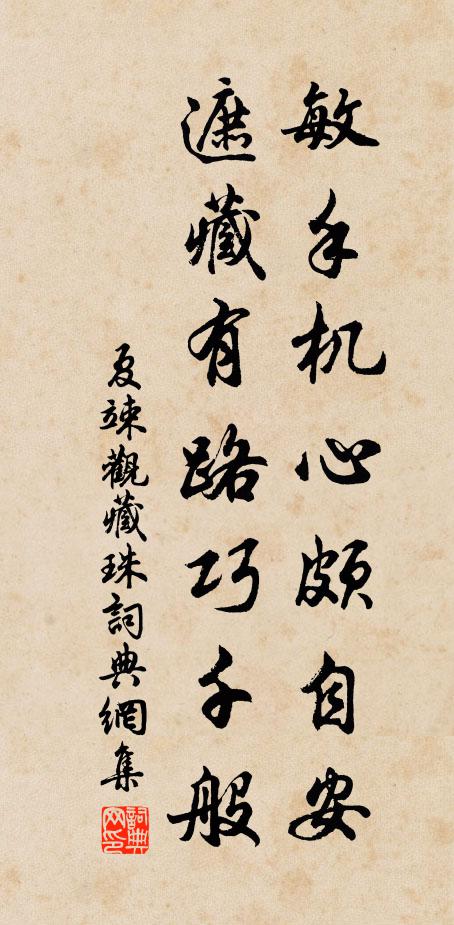 敏手机心頗自安
遮藏有路巧千般
夏竦觀藏珠詞典網集
詞典
网印